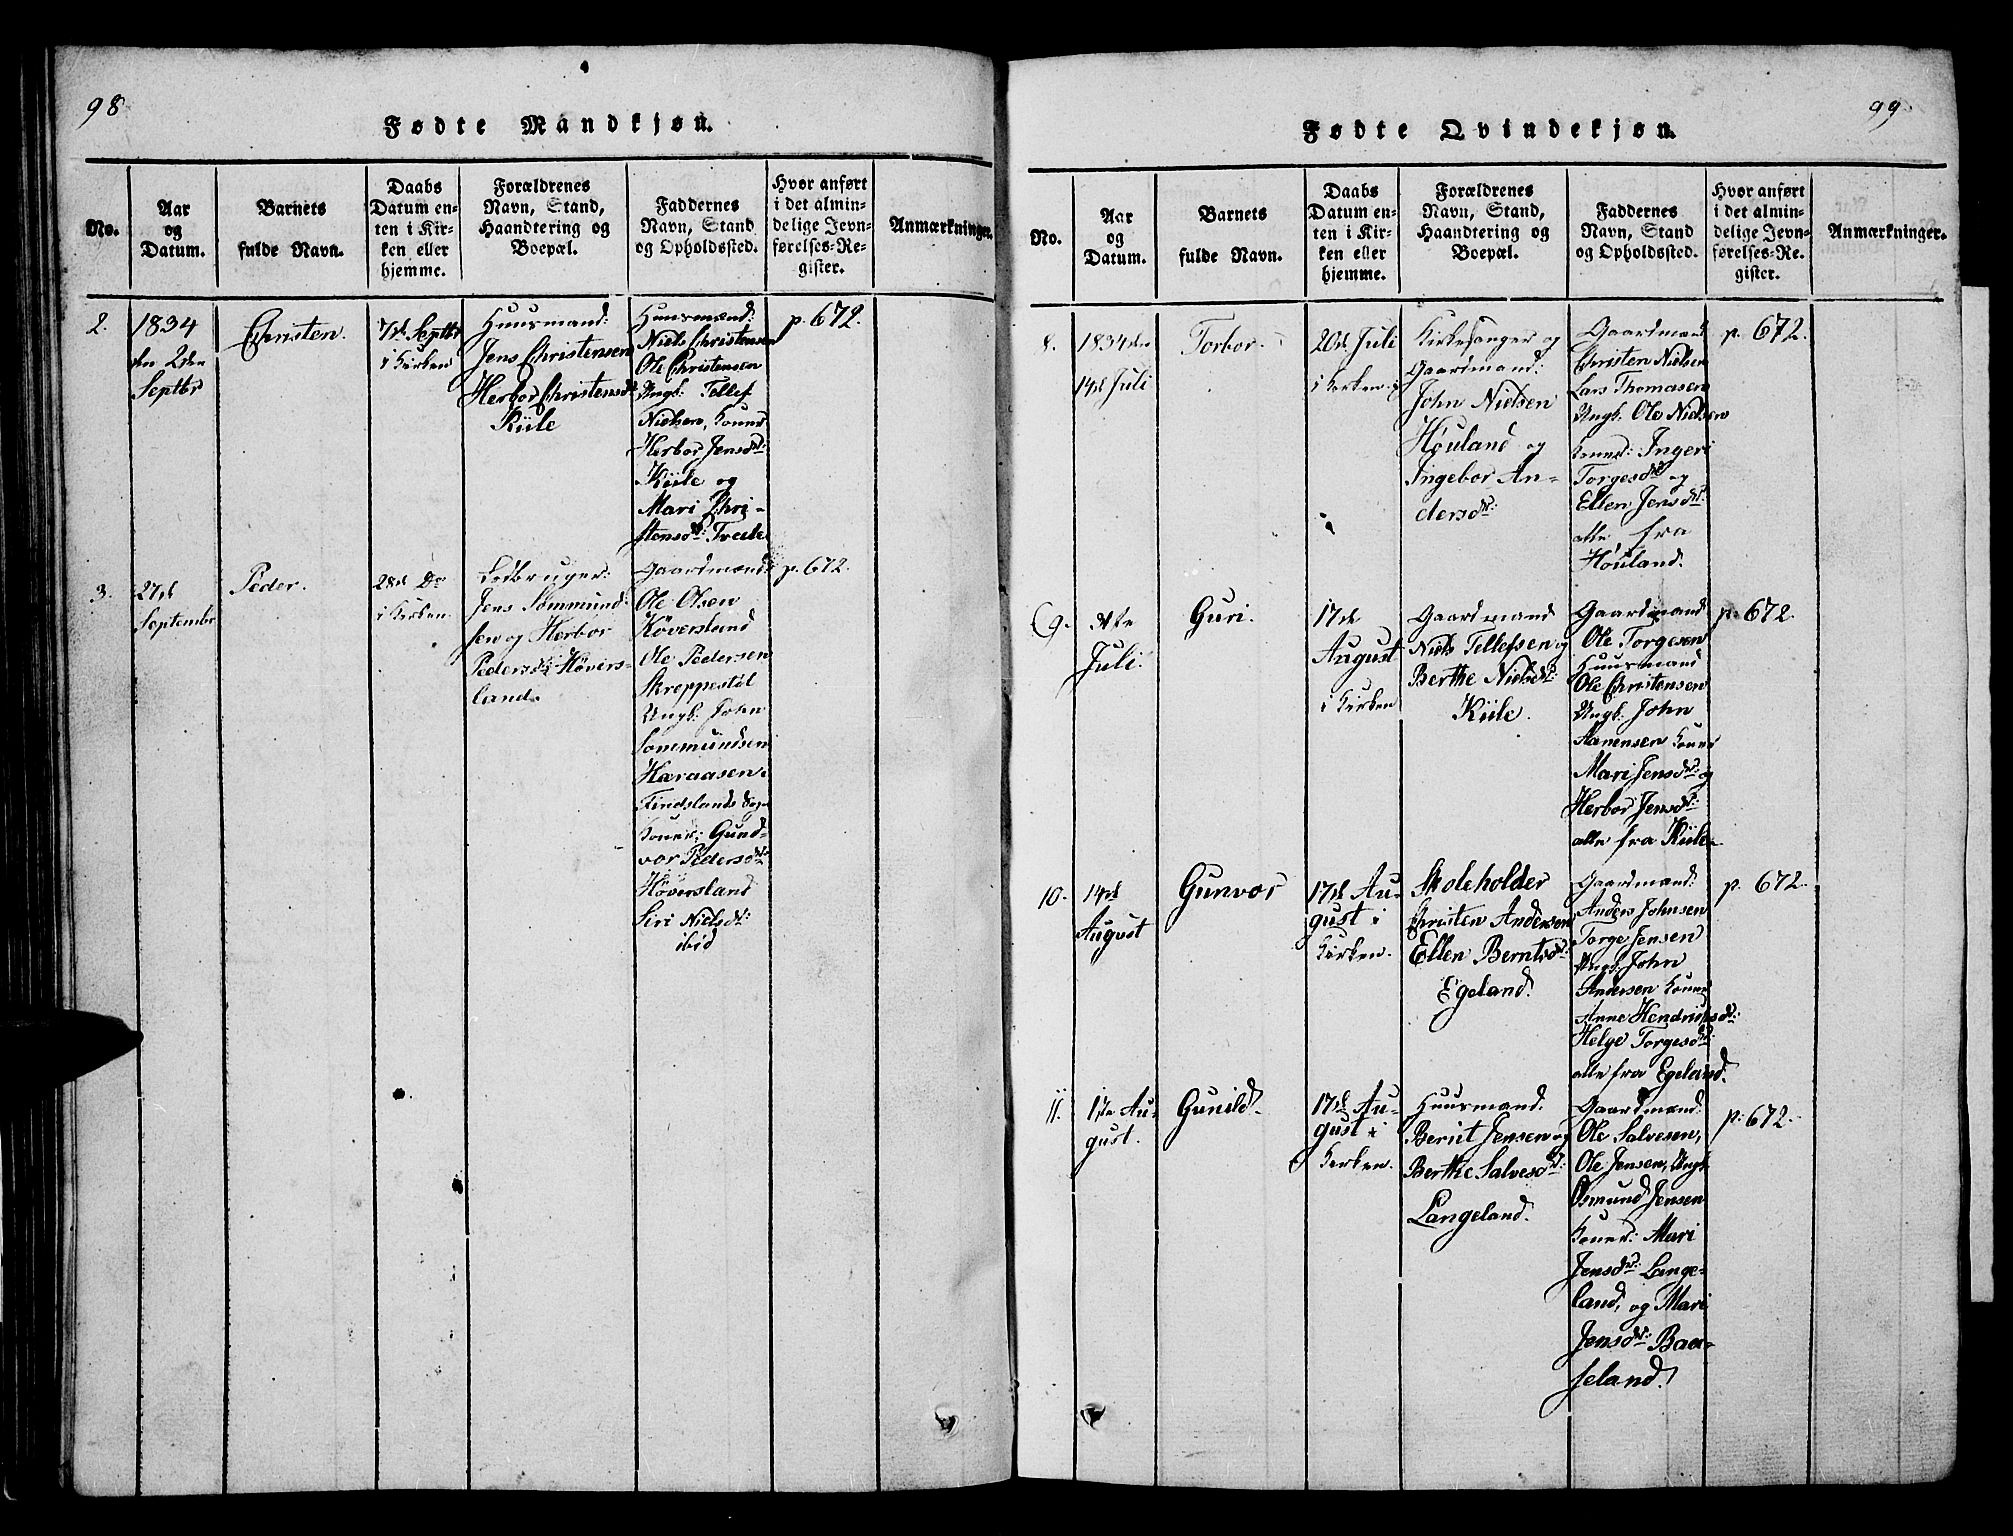 98
Fødte Mandkjøn.
No.
Aar
og
Datum.
Barnets
fulde Navn.
Daabs
Datum en-
ten i Kir-
ken eller
hjemme.
Forældrenes
Navn, Stand,
Haandtering og
Boepæl.
Faddernes
Navn, Stand
og Opholdssted.
Hvor anført
i det almin-
delige Jevn-
førelses-Re-
gister.
Anmærkninger.
2.
1834
den 2den
Septbr
Christen.
7de Septbr
i Kirken
Huusmand:
Jens Christensen
Herbor Christensdr
Kiile
Huusmænd:
Niels Christensen
Ole Christensen
Ungk: Tellef
Nielsen, Koner
Herbor Jensdr:
Kiile og
Mari Chri-
stensdr:
p. 672.
3.
27de
Septembr
Peder.
28de Do
i Kirken.
Ledbruger:
Jens Sommund-
sen og Herbor
Pedersdr Høvers-
land.
Gaardmænd:
Ole Olsen
Høversland
Ole Pedersen
Skreppestøl
Ungk: John
Sommundsen
Haraasen.
Findslands Sogn
Koner: Gund-
vor Pedersdr:
Høversland
Siri Nielsdr:
ibid
p. 672.
99
Fødte Qvindekjøn.
No.
Aar
og
Datum.
Barnets
fulde Navn.
Daabs
Datum en-
ten i Kir-
ken eller
hjemme.
Forældrenes
Navn, Stand,
Haandtering og
Boepæl.
Faddernes
Navn, Stand
og Opholdssted.
Hvor anført
i det almin-
delige Jevn-
førelses-Re-
gister.
Anmærkninger.
8.
1834 den
14de Juli
Torbor.
20de Juli
i Kirken.
Kirkesanger og
Gaardmand:
John Nielsen
Høuland og
Ingebor An-
dersdr:
Gaardmænd
Christen Nielsen
Lars Thomasen
Ungk. Ole Nielsen
Koner: Ingeri
Torgesdr og
Ellen Jensdr:
alle fra
Høuland.
p. 672.
9.
Juli.
Guri.
17de
August
i Kirken
Gaardmand
Niels Tellefsen og
Berthe Nielsdr:
Kiile.
Gaardmand
Ole Torgesen
Huusmand
Ole Christensen
Ungk. John
Hanensen Koner
Mari Jensdr: og
Herbor Jensdr:
alle fra Kiile.
p. 672.
10.
14de
August
Gunvor
17de Au-
gust i
Kirken.
Skoleholder
Christen Andersen
Ellen Berntsdr:
Egeland.
Gaardmænd:
Anders Johnsen
Torge Jensen
Ungk. John
Andersen Koner
Anne Hendrichsdr:
Helge Torgesdr:
alle fra Egeland.
p. 672.
11.
17de Au-
gust.
Gunild.
17de Au-
gust i
Kirken.
Huusmand.
Bernt Jensen og
Berthe Salvesdr:
Langeland.
Gaardmænd:
Ole Salvesen,
Ole Jensen, Ungk.
Osmund Jensen
Koner: Mari
Jensdr: Lange-
land, og Mari
Jensdr: Baa-
seland.
p: 672.